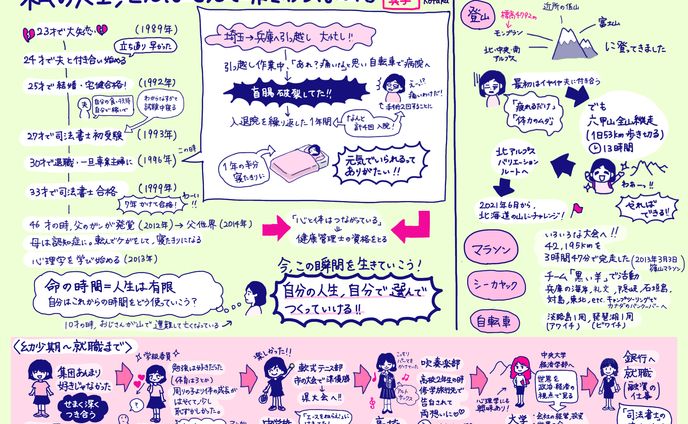 23才で大失恋
(1989年)
立ち直り早かった
24才で夫と付き合い始める
25才で結婚・宅建合格!
(1992年)
夫
自分の食いぶちは
自分で稼いで
わからなすぎて
試験中寝る
27才で司法書士初受験
(1993年)
30才で退職・一旦専業主婦に
(1996年)
この時
33才で司法書士合格
(1999年)
7年かけて合格!
わーい!!
46才の時、父のガンが発覚(2012年)→父他界(2014年)
母は認知症に。転んでケガをして、寝たきりになる
心理学を学び始める(2013年)
埼玉→兵庫へ引っ越し 大忙し!!
引っ越し作業中、「あれ?痛いな」と思い自転車で病院へ
盲腸破裂してた!!
入退院を繰り返した1年間
なんと
計4回入院!
1年の半分
寝たきりに
元気でいられるって
ありがたい!!
「心と体はつながっている」
健康管理士の資格をとる
今、この瞬間を生きていこう!
命の時間=人生は有限
自分はこれからの時間をどう使っていこう?
自分の人生、自分で選んで
つくっていける!!
10才の時、おじさんが山で遭難して亡くなっている
登山
標高4792m
モンブラン
近所の低山
富士山
北・中央・南
アルプス
に登ってきました
最初はイヤイヤ夫に付き合う
「疲れるだけ」
「体力のムダ」
でも
六甲山全山縦走
(1日53km歩ききる)
13時間
北アルプス
バリエーション
ルートへ
わぁー。!!
2021年6月から、
北海道の山にチャレンジ!
やれば
できる!!
マラソン
いろいろな大会へ!!
42,195kmを
3時間47分で完走した
(2013年3月3日
篠山マラソン)
シーカヤック
チーム「黒い羊」で活動
兵庫の海岸、礼文、隠岐、石垣島、
対馬、東北、etc.
キャンプツーリングで
自転車
淡路島1周、琵琶湖1周
(アワイチ)
(ビワイチ)
<幼少期~就職まで>
集団あんまり
好きじゃなかった
せまく深く
つき合う
学級委員
勉強は好きだった
(体育は3とか)
周りの子より体の成長が
はやくて、少し
恥ずかしかった。
楽しかった!!
軟式テニス部
市の大会で準優勝
県大会へ!!
中学校
吹奏楽部
高校2年生の時
修学旅行先で
告白されて
両想いに
心理学にも
興味あり!
大学
中央大学
経済学部へ
世界を
政治・経済の
視点で見る
銀行へ
就職
(融資の仕事)
「司法書士の